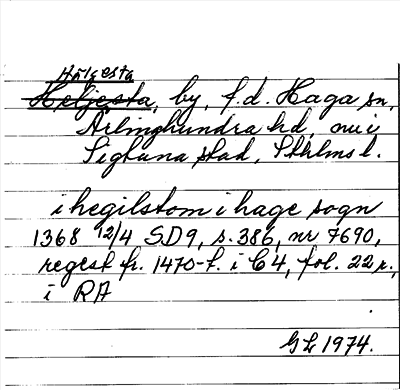 Hälgesta
Heljesta, by, f.d. Haga sn,
Ärlinghundra hd, nu i
Sigtuna stad, Sthlms l.
i hegilstom i hage sogn
1368 12/4 SD9, s. 386, nr 7690,
regest fr. 1470-t. i C4, fol. 22 r.,
i RA
GL 1974.